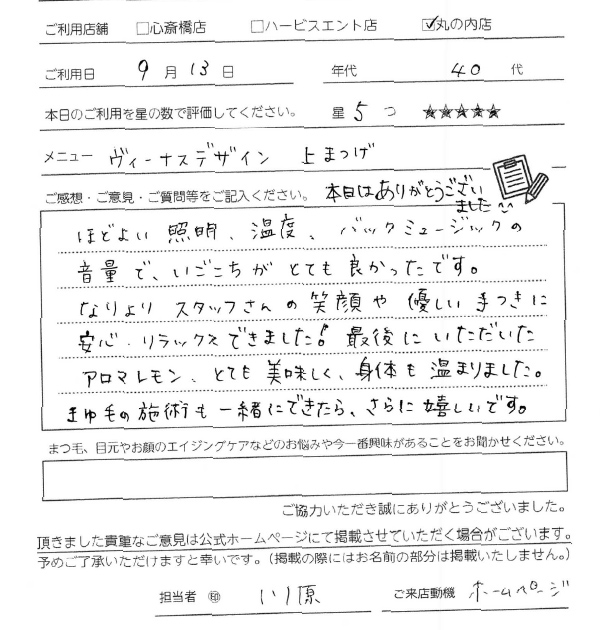 ご利用店舗 □心斎橋店 □ハービスエント店 ☑丸の内店
ご利用日 9月13日 年代 40代
本日のご利用を星の数で評価してください。 星5つ ★★★★★
メニュー ヴィーナスデザイン 上まつげ
ご感想・ご意見・ご質問等をご記入ください。 本日はありがとうござい
ました^^
ほどよい 照明、温度、バックミュージックの
音量で、いごこちがとても良かったです。
なりより スタッフさんの笑顔や優しい手つきに
安心・リラックスできました! 最後にいただいた
アロマレモン、とても美味しく、身体も温まりました。
まゆ毛の施術も一緒にできたら、さらに嬉しいです。
まつ毛、目元やお顔のエイジングケアなどのお悩みや今一番興味があることをお聞かせください。
ご協力いただき誠にありがとうございました。
頂きました貴重なご意見は公式ホームページにて掲載させていただく場合がございます。
予めご了承いただけますと幸いです。(掲載の際にはお名前の部分は掲載いたしません。)
担当者 ㊞ 川原 ご来店動機 ホームページ